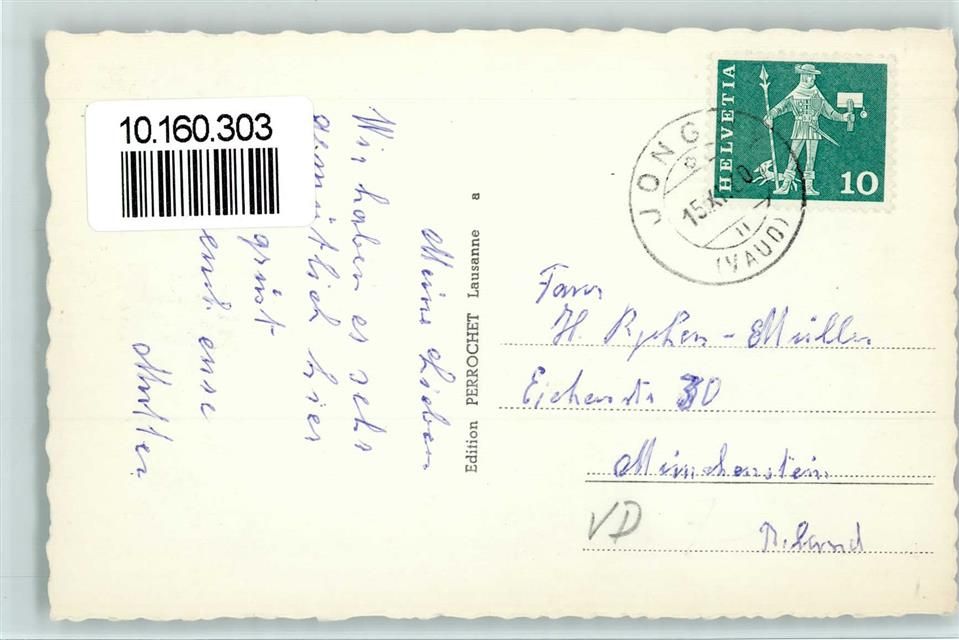 10.160.303
Meine Lieben
Wir haben es sehr
gemütlich hier
grüst
euch eure
Mutter
Edition PERROCHET Lausanne a
HELVETIA
10
JONGNY
15.XI. 60
(VAUD)
H. Ryhen-Müller
Eichenstr 30
Münchenstein
B. Land
VD